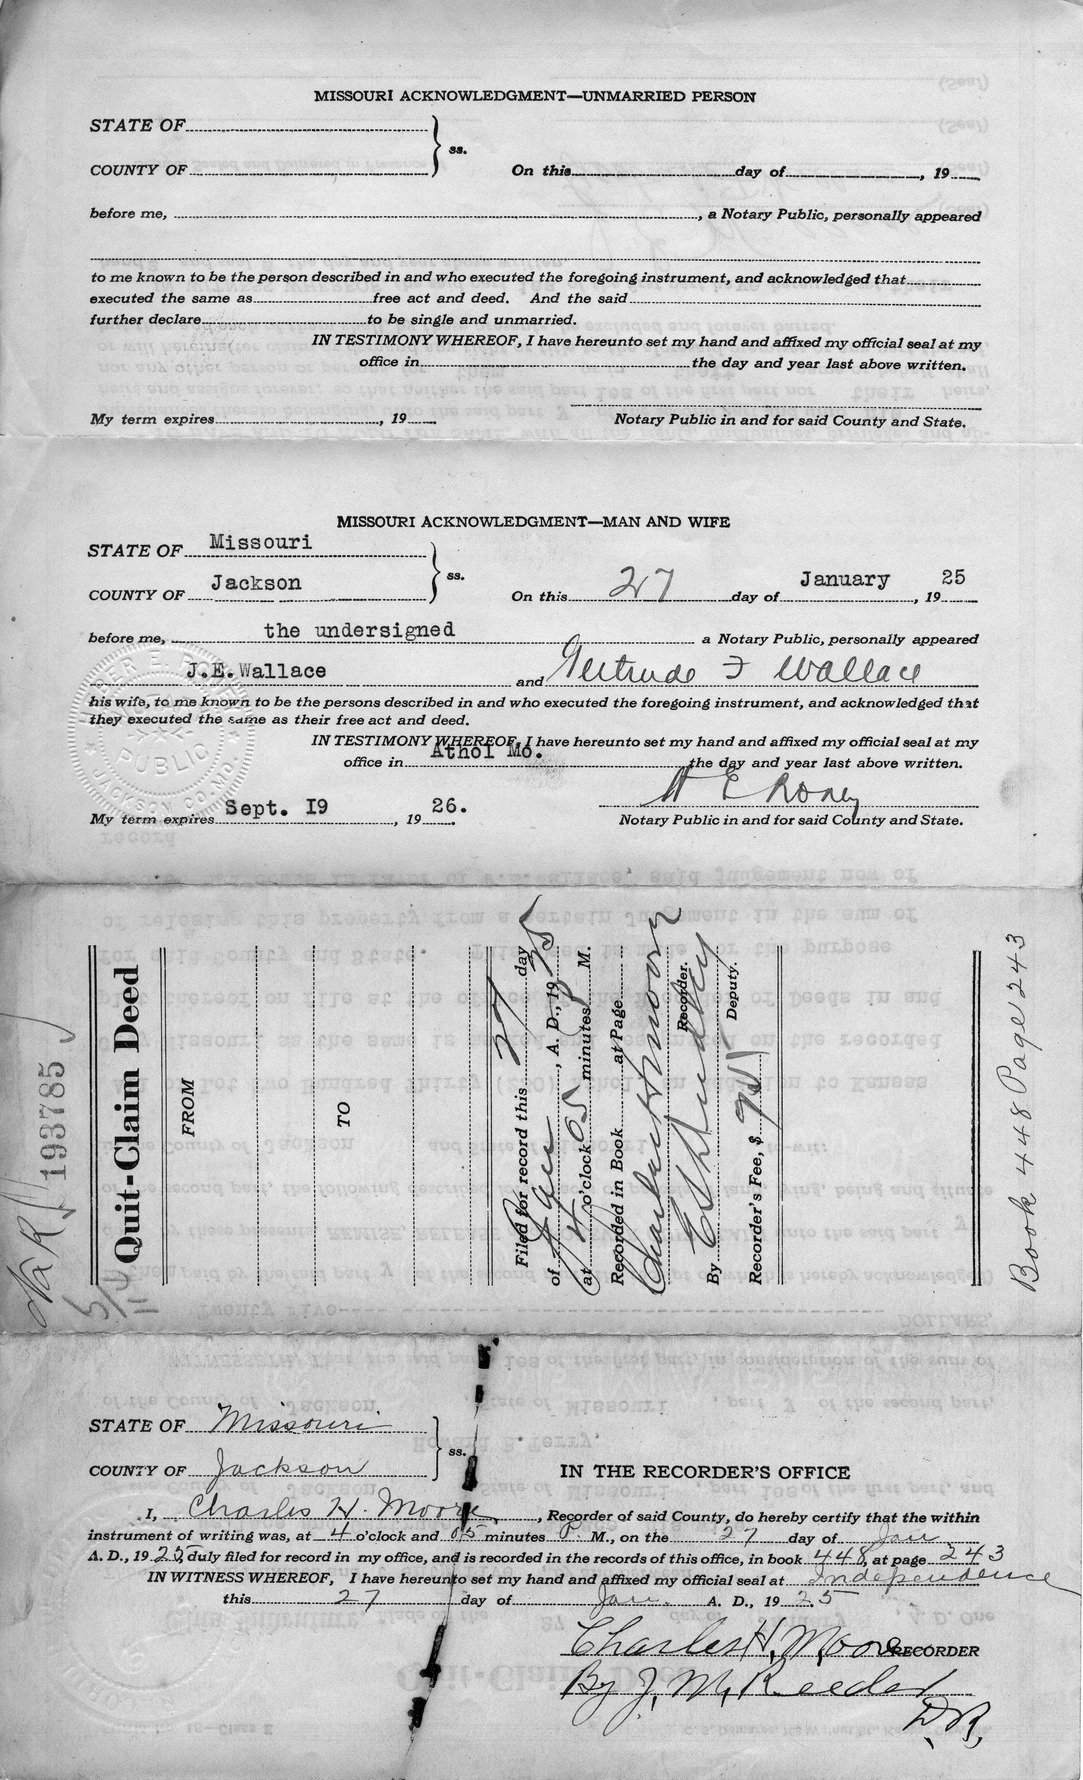 MISSOURI ACKNOWLEDGMENT—UNMARRIED PERSON
STATE OF
ss.
COUNTY OF On this day of , 19
before me, , a Notary Public, personally appeared
to me known to be the person described in and who executed the foregoing instrument, and acknowledged that
executed the same as free act and deed. And the said
further declare to be single and unmarried.
IN TESTIMONY WHEREOF, I have hereunto set my hand and affixed my official seal at my
office in the day and year last above written.
My term expires , 19 Notary Public in and for said County and State.
MISSOURI ACKNOWLEDGMENT—MAN AND WIFE
STATE OF Missouri
ss.
COUNTY OF Jackson On this 27 day of January , 19 25
before me, the undersigned a Notary Public, personally appeared
J.E.Wallace and Gertrude F Wallace
his wife, to me known to be the persons described in and who executed the foregoing instrument, and acknowledged that
they executed the same as their free act and deed.
IN TESTIMONY WHEREOF, I have hereunto set my hand and affixed my official seal at my
office in Athol Mo. the day and year last above written.
H E Roney
My term expires Sept. 19 , 19 26. Notary Public in and for said County and State.
PUBLIC
JACKSON CO. MO.
193785
Quit-Claim Deed
FROM
TO
Filed for record this 27 day
of Jan , A. D., 19 25
at 4 o'clock 05 minutes P M.
Recorded in Book at Page
Charles H Moore
Recorder.
By Deputy.
Recorder's Fee, $
Book 448 Page 243
STATE OF Missouri
ss.
COUNTY OF Jackson
IN THE RECORDER'S OFFICE
I, Charles H. Moore , Recorder of said County, do hereby certify that the within
instrument of writing was, at 4 o'clock and 05 minutes P. M., on the 27 day of Jan
A. D., 19 25, duly filed for record in my office, and is recorded in the records of this office, in book 448, at page 243
IN WITNESS WHEREOF, I have hereunto set my hand and affixed my official seal at Independence
this 27 day of Jan. A. D., 19 25
Charles H. Moore RECORDER
By J. M. Reeder
D.R.